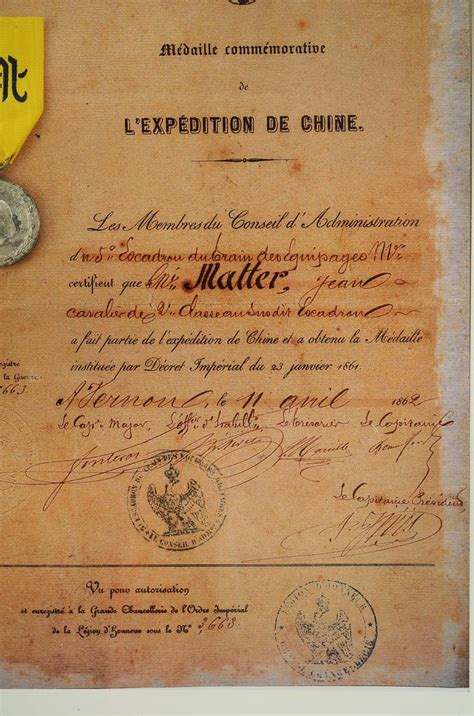 Médaille commémorative
de
L'EXPÉDITION DE CHINE.
Les Membres du Conseil d'Administration
d u 5e Escadron du train des Equipages Mres
certifient que le Mr Matter, Jean
cavalier de 2e Classe au susdit Escadron
a fait partie de l'expédition de Chine et a obtenu la Médaille
instituée par Décret Impérial du 23 janvier 1861.
A Vernon, le 11 avril 1862
Le Capne Major, L'offer d'habillt Le trésorier Le Capitaine
Le Capitaine Président
Vu pour autorisation
et enregistré à la Grande Chancellerie de l'Ordre Impérial
de la Légion d'Honneur sous le No 3663
LEGION D'HONNEUR